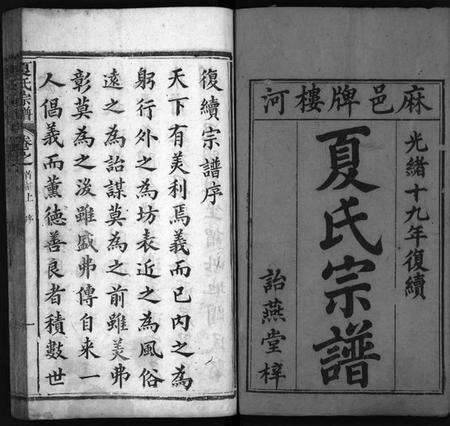 麻邑牌樓河
光緒十九年復續
夏氏宗譜
詒燕堂梓
復續宗譜序
天下有美利焉義而已内之為
躬行外之為坊表近之為風俗
遠之為詒謀莫為之前雖美弗
彰莫為之後雖盛弗傳自来一
人倡義而薰德善良者積數世
夏氏宗譜 卷之
上
一